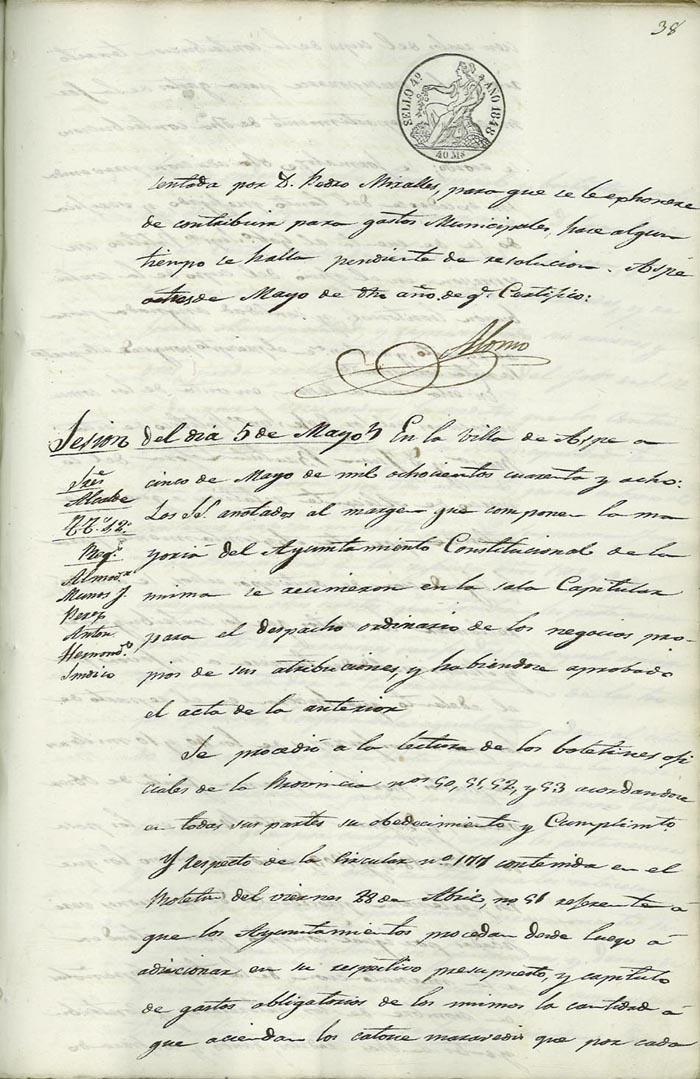 38
SELLO 4º AÑO 1848
40 Ms
sentada por D. Pedro Miralles, para que se le exhonere
de contribuir para gastos Municipales, hace algun
tiempo se halla pendiente de resolucion. Aspe
a tres de Mayo de dho año, de q.e Certifico:
Alonso
Sesion del dia 5 de Mayo En la Villa de Aspe a
cinco de Mayo de mil ochocientos cuarenta y ocho:
Los SS. anotados al margen que componen la ma
yoria del Ayuntamiento Constitucional de la
misma se reunieron en la sala Capitular
para el despacho ordinario de los negocios pro-
pios de sus atribuciones, y habiendose aprobado
el acta de la anterior
Sres
Alcalde
Reg.s
Almod.r
Munos J.
Perez
Anton
Hernand.z
Sindico
Se procedió a la lectura de los boletines ofi
ciales de la Provincia nos 50, 51, 52, y 53 acordandose
en todas sus partes su obedecimiento y Cumplimto
Y respecto de la Circular nº 177 contenida en el
Boletin del viernes 28 de Abril, no 51 referente á
que los Ayuntamientos procedan desde luego á
adicionar en su respectivo presupuesto, y capitulo
de gastos obligatorios de los mismos la cantidad á
que aciendan los catorce maravedis que por cada